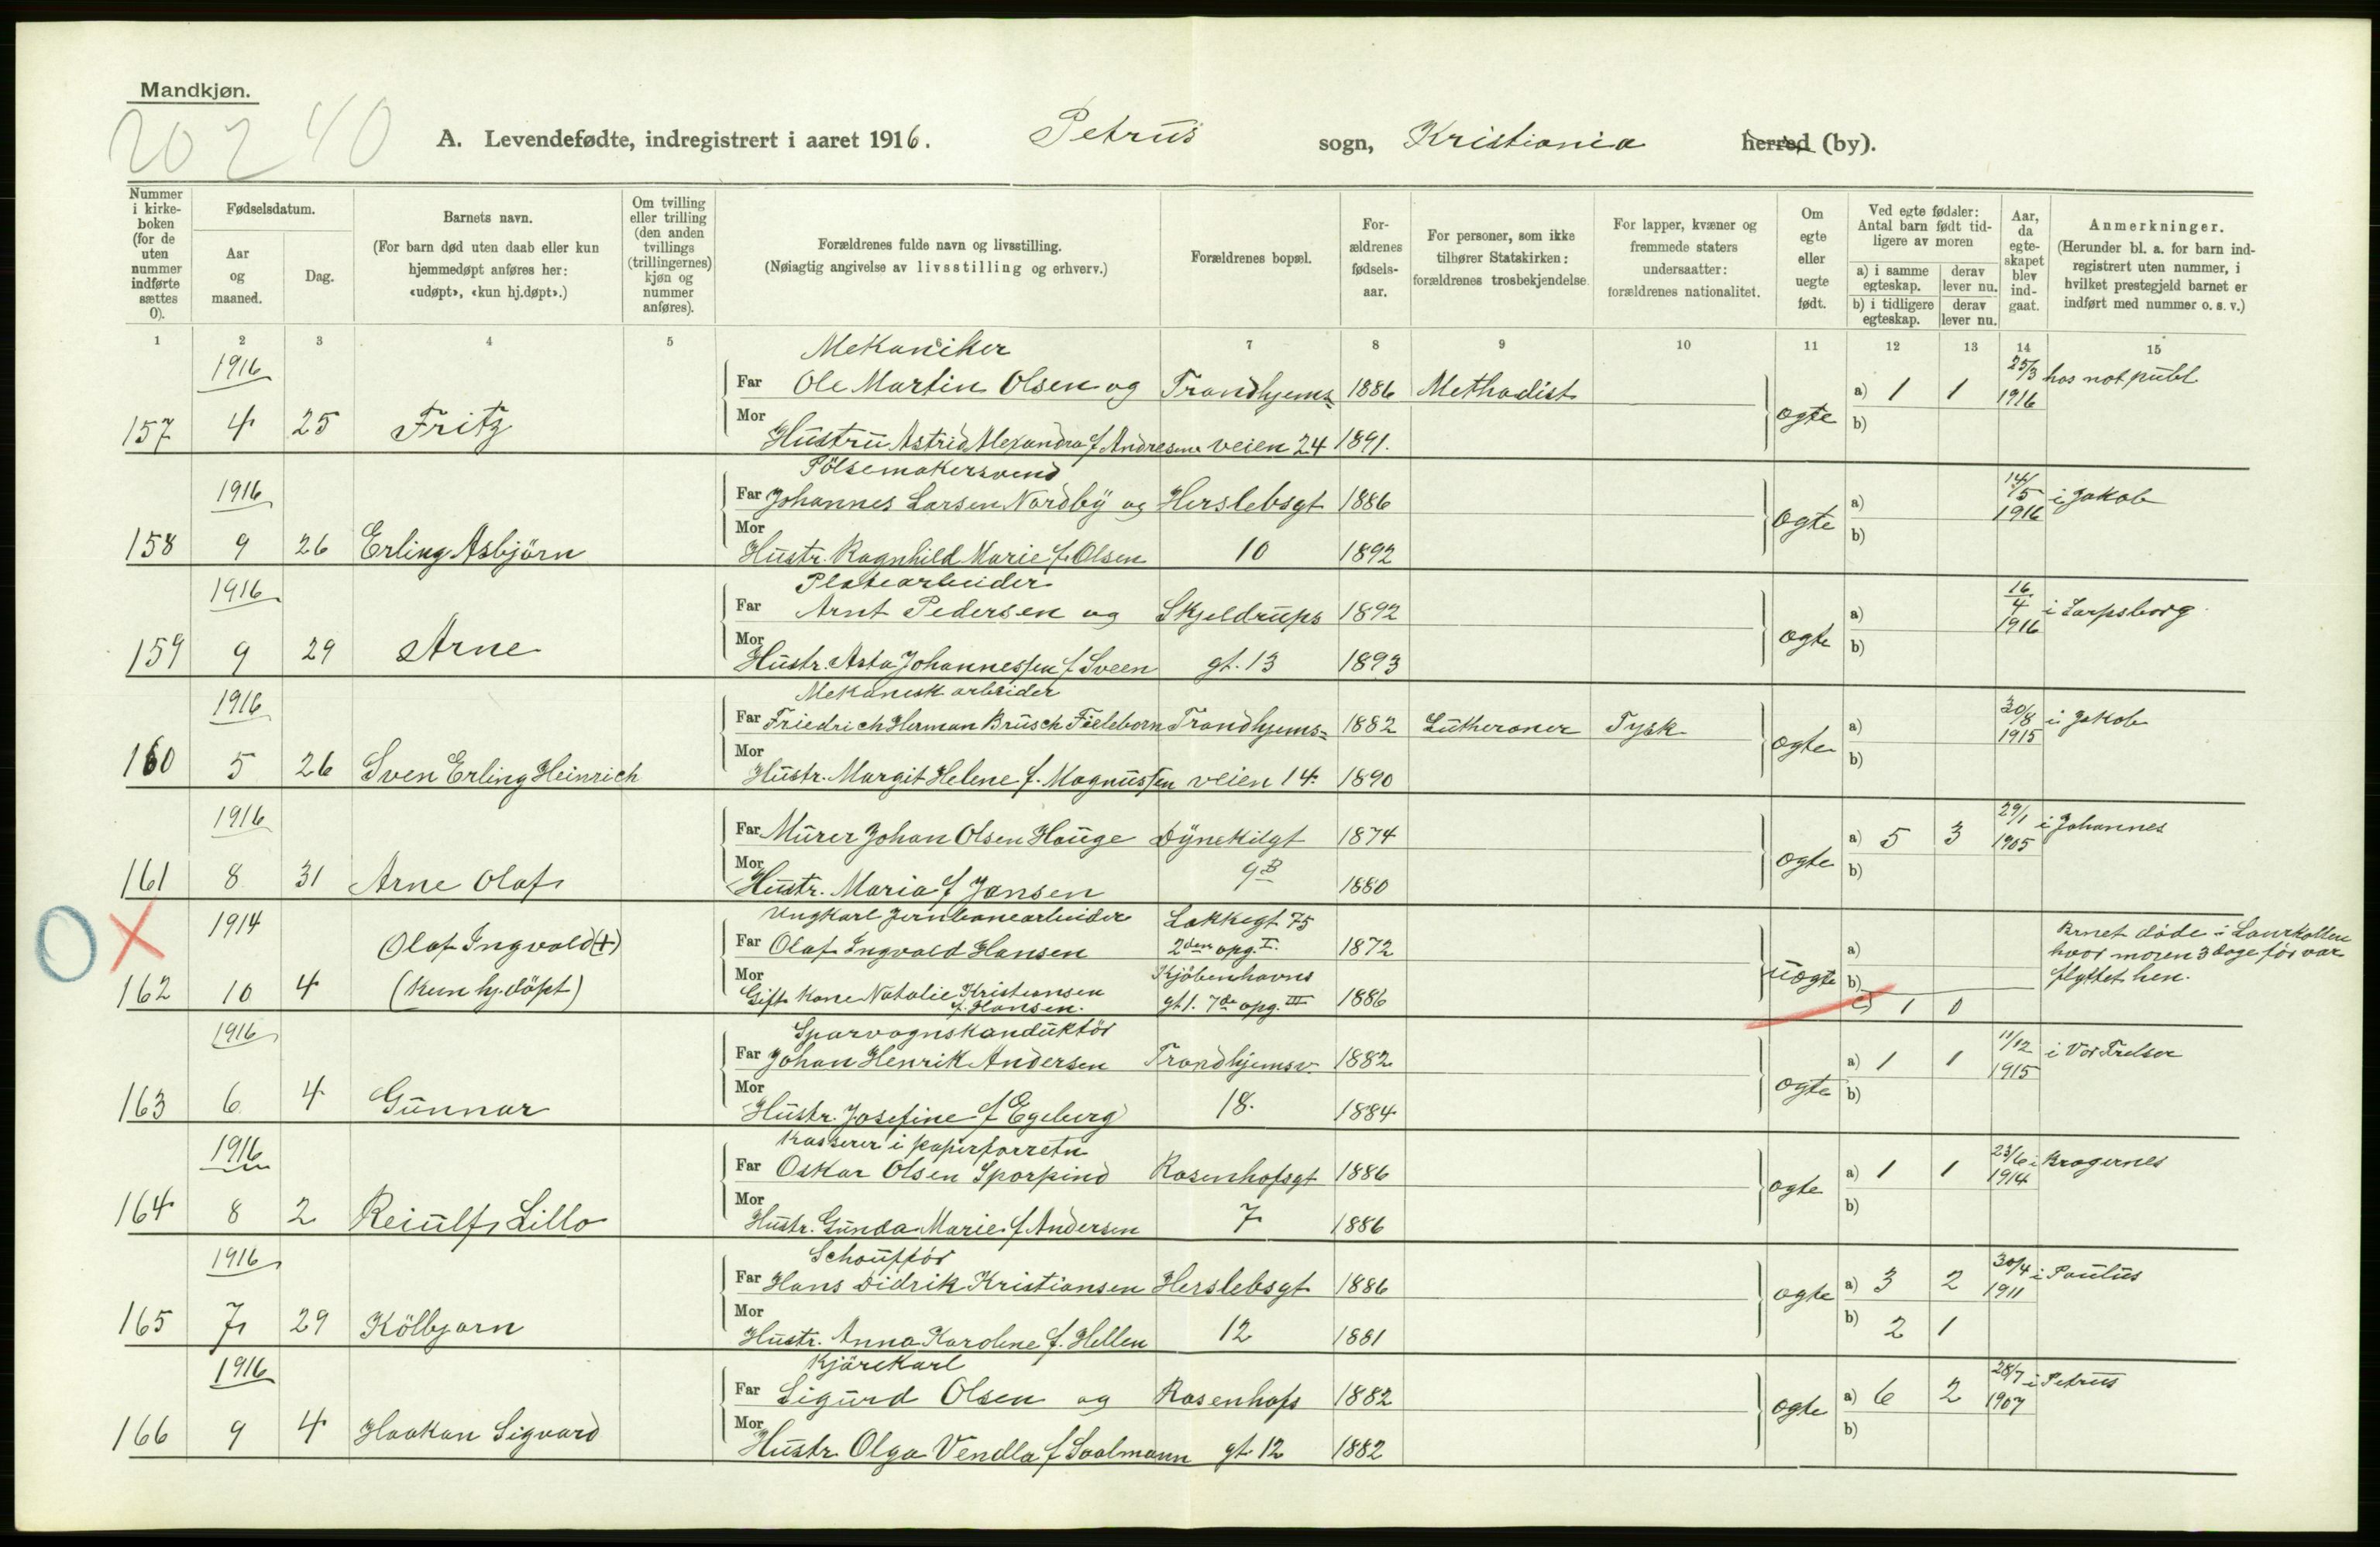 Mandkjøn.
20240
A. Levendefødte, indregistrert i aaret 1916. Petrus sogn, Kristiania herred (by).
Nummer i kirke-boken (for de uten nummer indførte sættes 0).
Fødselsdatum.
Aar og maaned.
Dag.
Barnets navn.
(For barn død uten daab eller kun hjemmedøpt anføres her: «udøpt», «kun hj.døpt».)
Om tvilling eller trilling (den anden tvillings (trillingernes) kjøn og nummer anføres).
Forældrenes fulde navn og livsstilling.
(Nøiagtig angivelse av livsstilling og erhverv.)
Forældrenes bopæl.
For-ældrenes fødsels-aar.
For personer, som ikke tilhører Statskirken: forældrenes trosbekjendelse.
For lapper, kvæner og fremmede staters undersaatter: forældrenes nationalitet.
Om egte eller uegte født.
Ved egte fødsler: Antal barn født tid-ligere av moren
a) i samme egteskap. derav lever nu.
b) i tidligere egteskap. derav lever nu.
Aar, da egte-skapet blev ind-gaat.
Anmerkninger.
(Herunder bl. a. for barn ind-registrert uten nummer, i hvilket prestegjeld barnet er indført med nummer o. s. v.)
1 2 3 4 5 6 7 8 9 10 11 12 13 14 15
1916 Mekaniker 25/3
Far Ole Martin Olsen og Trondhjems= 1886 Methodist a) 1 1 1916 hos not. publ
157 4 25 Fritz Mor Hustru Astrid Alexandra f Andresen veien 24 1891. egte b)
1916 Pölsemakersvend 14/5
Far Johannes Larsen Nordby og Herslebsgt 1886 a) 1916 i Jakob
158 9 26 Erling Asbjörn Mor Hustr. Ragnhild Marie f. Olsen 10 1892 egte b)
1916 Platearbeider 16/4
Far Arnt Pedersen og Skjeldrups 1892 a) 1916 i Sarpsborg
159 9 29 Arne Mor Hustr. Asta Johannessen f Sveen gt. 13 1893 egte b)
1916 Mekanisk arbeider 30/8
Far Friedrich Herman Brüsch Fieleborn Trondhjems= 1882 Lutheraner Tysk a) 1915 i Jakob
160 5 26 Sven Erling Heinrich Mor Hustr. Margit Helene f. Magnussen veien 14. 1890 egte b)
1916 29/1
Far Murer Johan Olsen Hauge Dynekilgt 1874 a) 5 3 1905 i Johannes
161 8 31 Arne Olaf Mor Hustr. Maria f Jansen 9B 1880 egte b)
O X
1914 Ungkarl Jernbanearbeider Lakkegt 75
Olaf Ingvald (+) Far Olaf Ingvald Hansen 2den opg. I. 1872 a) Brnet döde i Laurkollen hvor moren 3 dage för var flyttet hen.
162 10 4 (kun hj.döpt) Mor Gift Kone Natalie Kristiansen f. Hansen. Kjöbenhavns gt 1. 7de opg. III 1886 uegte b)
c) 1 0
1916 Sporvognskonduktör 11/12
Far Johan Henrik Andersen Trondhjemsv. 1882 a) 1 1 1915 i Vor Frelser
163 6 4 Gunnar Mor Hustr. Josefine f Egeberg 18. 1884 egte b)
1916 Kasserer i papirforretn 23/6
Far Oskar Olsen Sporpind Rosenhofsgt 1886 a) 1 1 1914 i Bragernes
164 8 2 Reiulf Lillo Mor Hustr. Gunda Marie f Andersen 7 1886 egte b)
1916 Schoufför 30/4
Far Hans Didrik Kristiansen Herslebsgt 1886 a) 3 2 1911 i Paulus
165 7 29 Kölbjorn Mor Hustr. Anna Karoline f. Hellen 12 1881 egte b) 2 1
1916 Kjörekarl 28/7
Far Sigurd Olsen og Rosenhofs 1882 a) 6 2 1907 i Petrus
166 9 4 Haakon Sigvard Mor Hustr Olga Vendla f Saalmann gt. 12 1882 egte b)